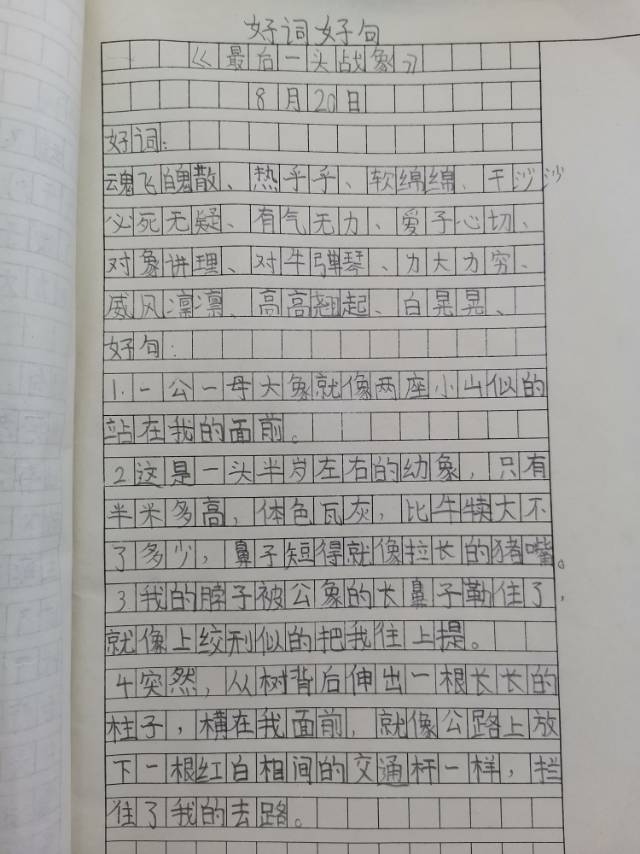 好词好句
《最后一头战象》
8月20日
好词:
魂飞魄散、热乎乎、软绵绵、干沙沙
必死无疑、有气无力、爱子心切、
对象讲理、对牛弹琴、力大力穷、
威风凛凛、高高翘起、白晃晃、
好句:
1.一公一母大象就像两座小山似的
站在我的面前。
2这是一头半岁左右的幼象,只有
半米多高,体色瓦灰,比牛犊大不
了多少,鼻子短得就像拉长的猪嘴。
3我的脖子被公象的长鼻子勒住了,
就像上绞刑似的把我往上提。
4突然,从树背后伸出一根长长的
柱子,横在我面前,就像公路上放
下一根红白相间的交通杆一样,拦
住了我的去路。